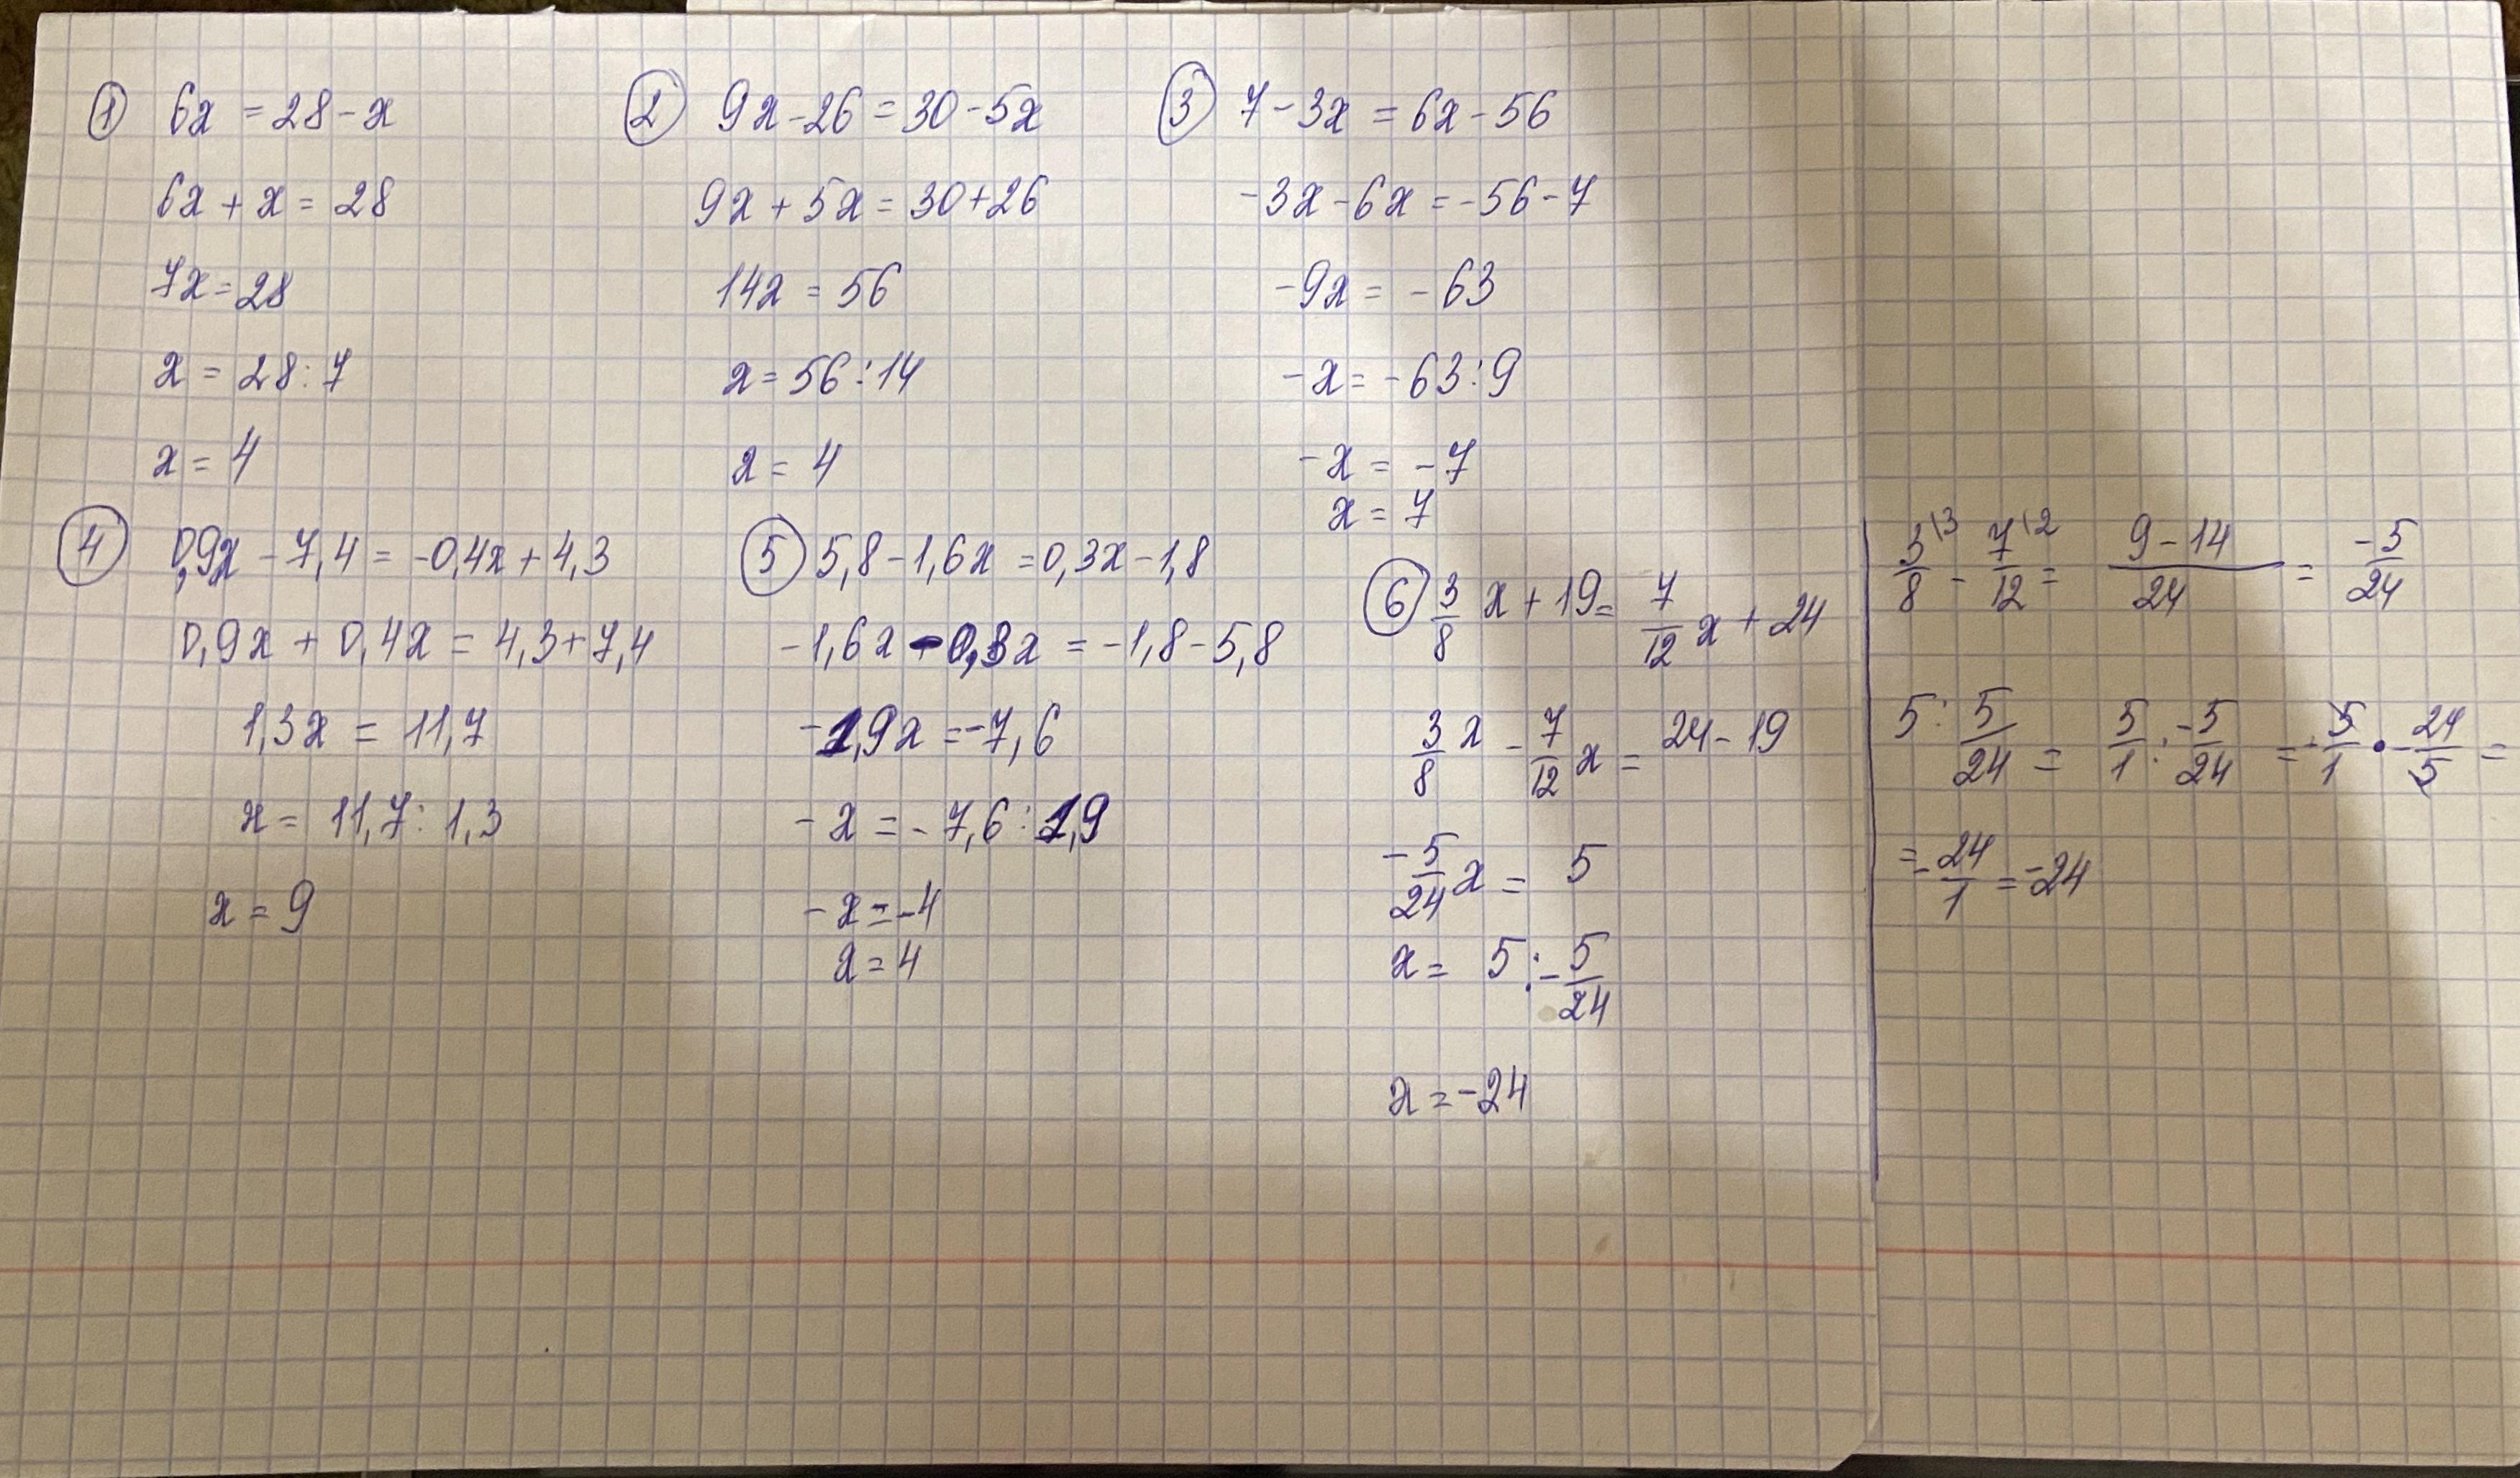 ① 6x = 28 - x
6x + x = 28
7x = 28
x = 28 : 7
x = 4
② 9x - 26 = 30 - 5x
9x + 5x = 30 + 26
14x = 56
x = 56 : 14
x = 4
③ 7 - 3x = 6x - 56
-3x - 6x = -56 - 7
-9x = -63
-x = -63 : 9
-x = -7
x = 7
④ 0,9x - 7,4 = -0,4x + 4,3
0,9x + 0,4x = 4,3 + 7,4
1,3x = 11,7
x = 11,7 : 1,3
x = 9
⑤ 5,8 - 1,6x = 0,3x - 1,8
-1,6x - 0,3x = -1,8 - 5,8
-1,9x = -7,6
-x = -7,6 : 1,9
-x = -4
x = 4
⑥ 3/8 x + 19 = 7/12 x + 24
3/8 x - 7/12 x = 24 - 19
-5/24 x = 5
x = 5 : -5/24
x = -24
3/8 \3 - 7/12 \2 = 9-14/24 = -5/24
5 : 5/24 = 5/1 : -5/24 = -5/1 • -24/5 =
= -24/1 = -24